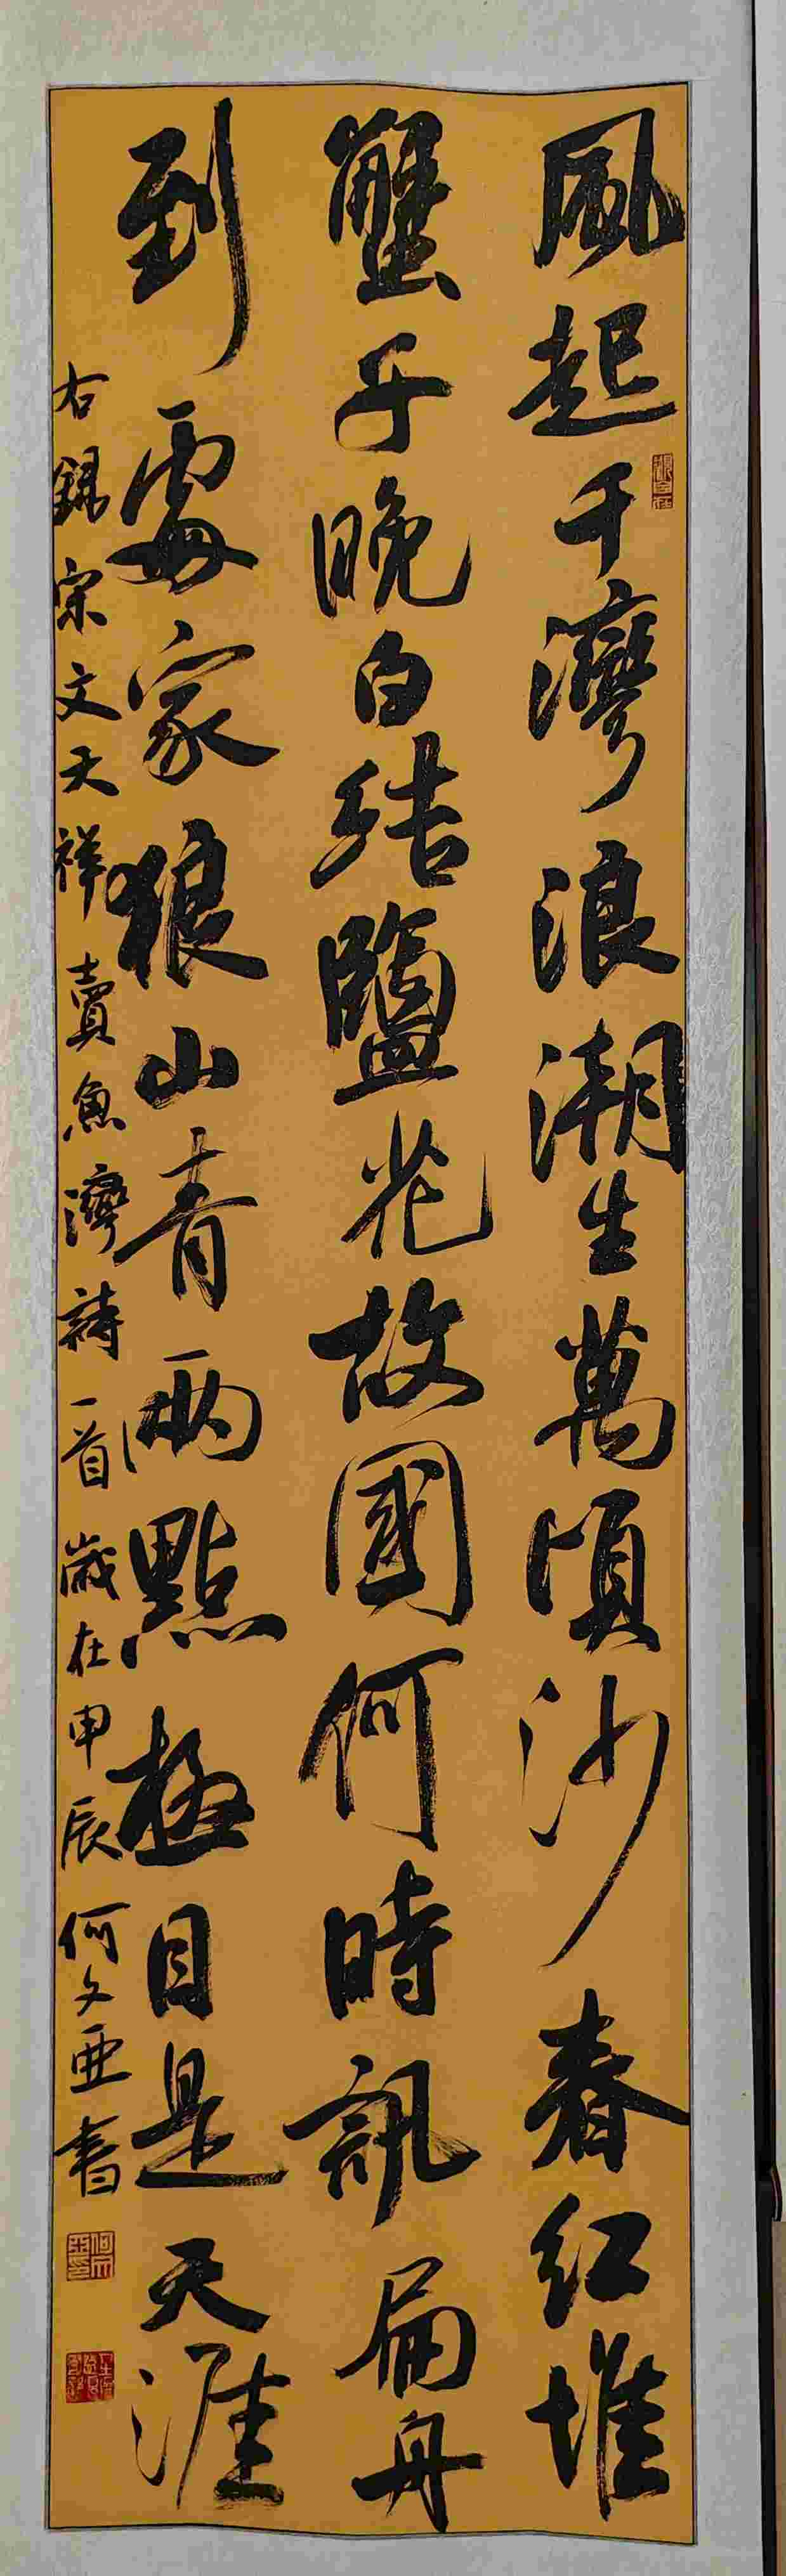 風起千灣浪潮生萬頃沙春紅堆
蟹子晚白結鹽花故國何時訊扁舟
到處家狼山青兩點極目是天涯
右錄宋文天祥賣魚灣詩一首歲在甲辰何文亜書